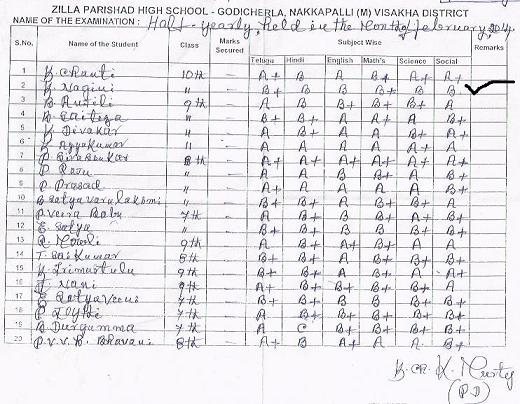 ZILLA PARISHAD HIGH SCHOOL - GODICHERLA, NAKKAPALLI (M) VISAKHA DISTRICT
NAME OF THE EXAMINATION : Half - yearly, held in the Month of february, 2014.
S.No. Name of the Student Class Marks Secured Subject Wise Remarks
Telugu Hindi English Math's Science Social
1 K. Chanti 10th A+ B A B+ A+ A+
2 K. Nagini " B+ B B B+ B B
3 9th A B B+ B+ B+ A
4 " B+ B+ A A+ A B+
5 K. Divakar " A B+ A A B+ A
6 K. Ayyakumar " A A A B+ A A
7 P. Sivasankar 8th A+ A+ A+ A+ A+ A+
8 P. Raju " A A B B+ A B+
9 P. Prasad " A A A A A B+
10 B. Satyavaralakshmi " B+ B+ A B B+ A
11 P. Veera Babu 7th A B+ B+ A A B+
12 E. Satya " B+ B+ B B+ A B+
13 R. Mouli 9th A B+ A+ B+ A A
14 T. Sai Kumar 8th B+ A B+ A B+ B+
15 K. Srimurtulu 9th B+ B+ A B+ A A+
16 T. Nani 9th A+ B+ B+ B+ B+ A
17 E. Satyaveni 7th B+ B+ B B B+ A
18 P. Jythi 7th A B+ B+ B+ A B+
19 B. Durgamma 7th A C B+ B+ B+ B+
20 P.V.V.B. Bhavani 8th A+ B A+ A A B+
K. Murty
(P.D)